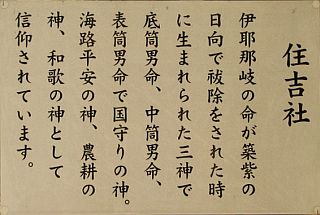 住吉社
伊耶那岐の命が築紫の
日向で祓除をされた時
に生まれられた三神で
底筒男命、中筒男命、
表筒男命で国守りの神。
海路平安の神、農耕の
神、和歌の神として
信仰されています。